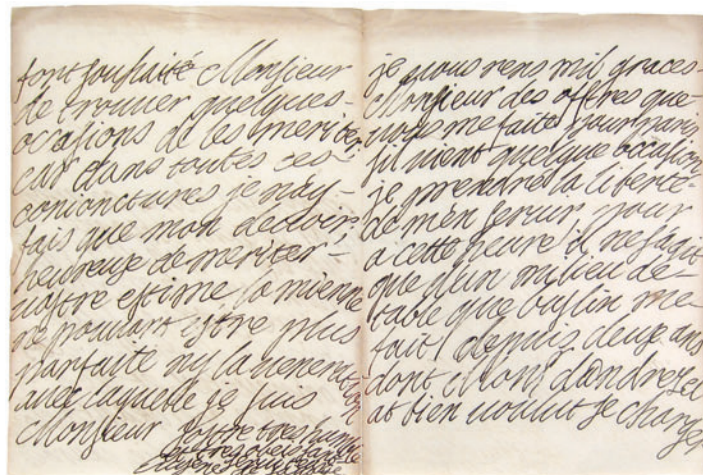 fort souhaité Monsieur
de trouuer quelques
occasions de les meriter
car dans toutes ces
conionctures je nay
fais que mon deuoir,
heureuze de meriter
uostre estime la mienne
ne pouuant estre plus
parfaite ny la ueneration
auec laquelle je suis
Monsieur Vostre tres humble
et tres obeissante
seruante
je uous rens mil graces
Monsieur des offres que
uous me faite pour paris
sil uient quelque occasion
je prendré la liberté
de mén seruir pour
a cette heure il ne ságit
que dun milieu de
table que me
fait depuiz deuze ans
dont Mons dandrezel
at bien uoulut se charger